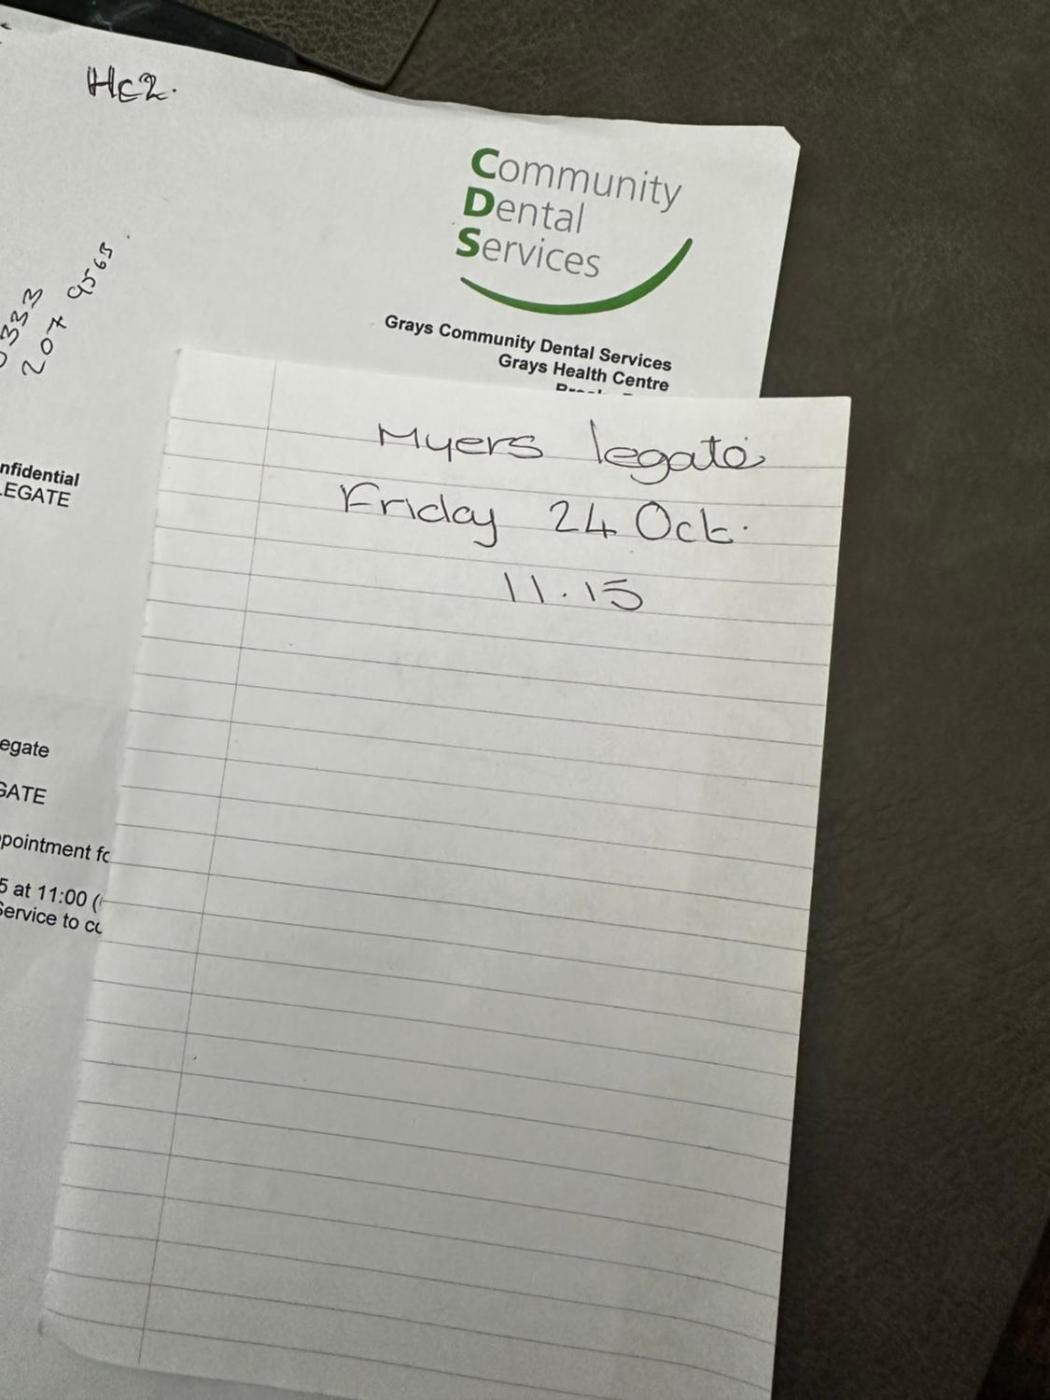 HC2.
Community
Dental
Services
Grays Community Dental Services
Grays Health Centre
333
207 9565
nfidential
LEGATE
Myers legate
Friday 24 Oct.
11.15
egate
GATE
pointment fo
5 at 11:00 (
Service to co